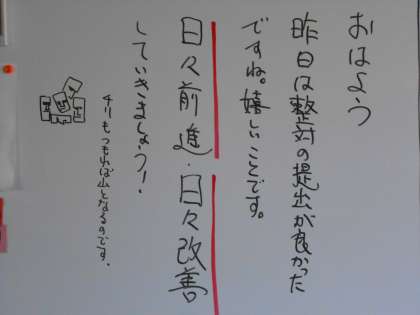 おはよう
昨日は整対の提出が良かった
ですね。嬉しいことです。
日々前進・日々改善
していきましょう！
チリもつもれば山となるのです。